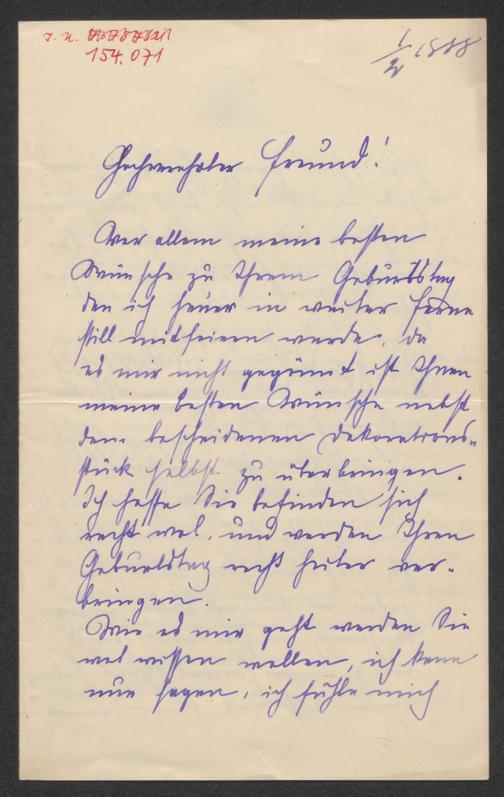 I. N.
154.071
1/2 1888
Hochverehrter Freund!
Vor allem meine besten
Wünsche zu Ihrem Geburtstag
den ich heuer in weiter Ferne
still mitfeiern werde, da
es mir nicht gegönnt ist Ihnen
meine besten Wünsche nebst
dem bescheidenen Dekorations-
stück selbst zu überbringen.
Ich hoffe Sie befinden sich
recht wol, und werden Ihren
Geburtstag recht heiter ver-
bringen.
Wie es mir geht werden Sie
wol wissen wollen, ich kann
nur sagen, ich fühle mich